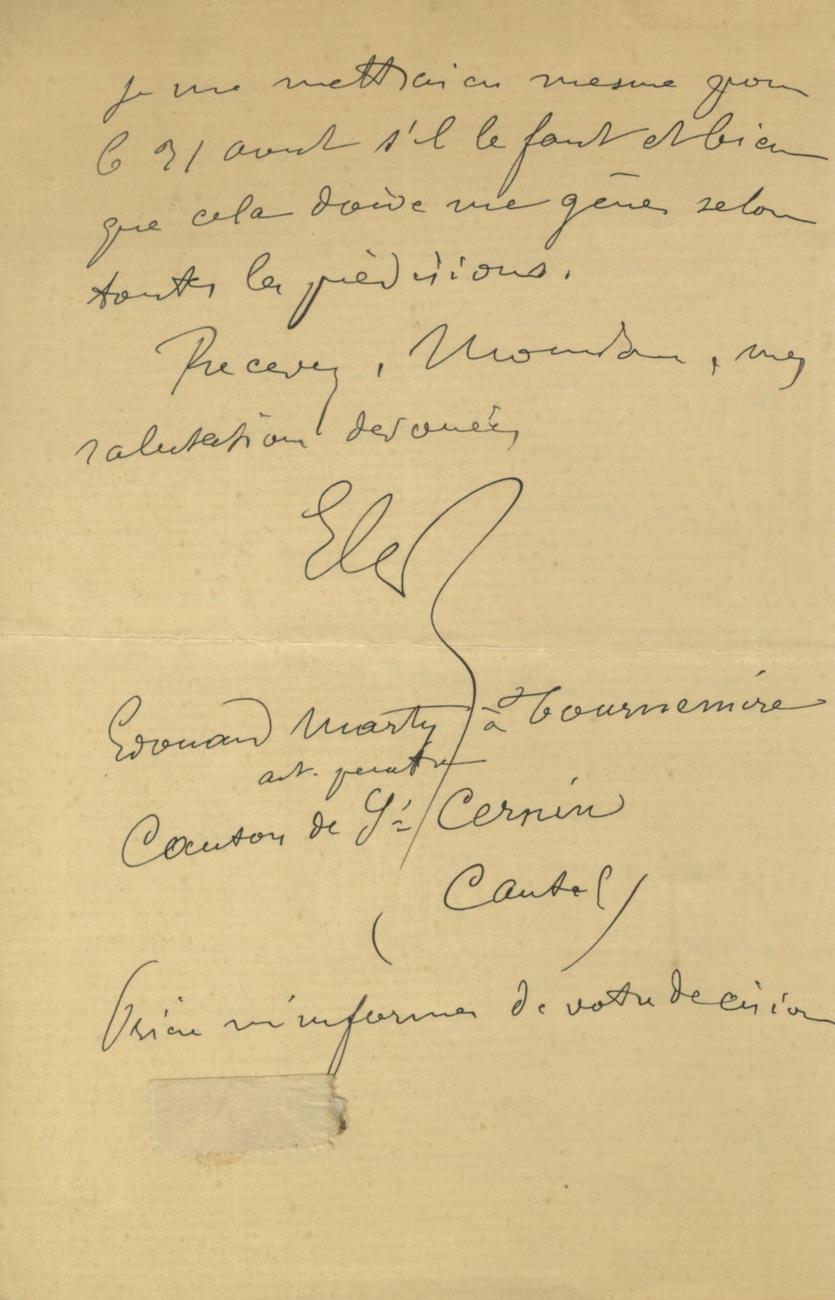 Je me mettrai en mesure pour
le 31 août s'il le faut et bien
que cela doive me gêner selon
toutes les prévisions.
Recevez, Monsieur, mes
salutations dévouées
Edouard Marty à Tournemire
art. peintre
Canton de St Cernin
(Cantal)
Prière m'informer de votre décision